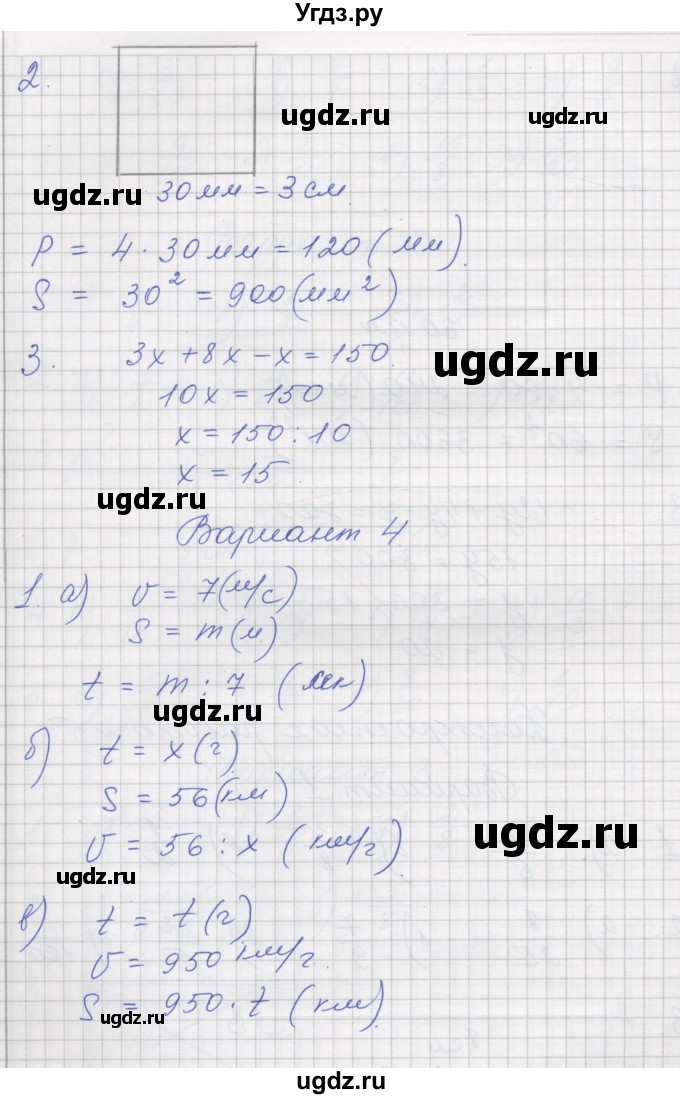 Угдз.ру
2.
ugdz.ru
ugdz.ru
30 мм = 3 см.
P = 4 · 30 мм = 120 (мм).
S = 30² = 900 (мм²)
3. 3x + 8x - x = 150.
ugdz.ru
10x = 150
x = 150 : 10
x = 15
ugdz.ru
Вариант 4
1. а) v = 7 (м/с)
S = m (м)
t = m : 7 (сек)
ugdz.ru
б) t = x (г)
S = 56 (км)
v = 56 : x (км/г).
ugdz.ru
ugdz.ru
в) t = t (г)
v = 950 км/г.
S = 950 · t (км).
ugdz.ru
ugdz.ru